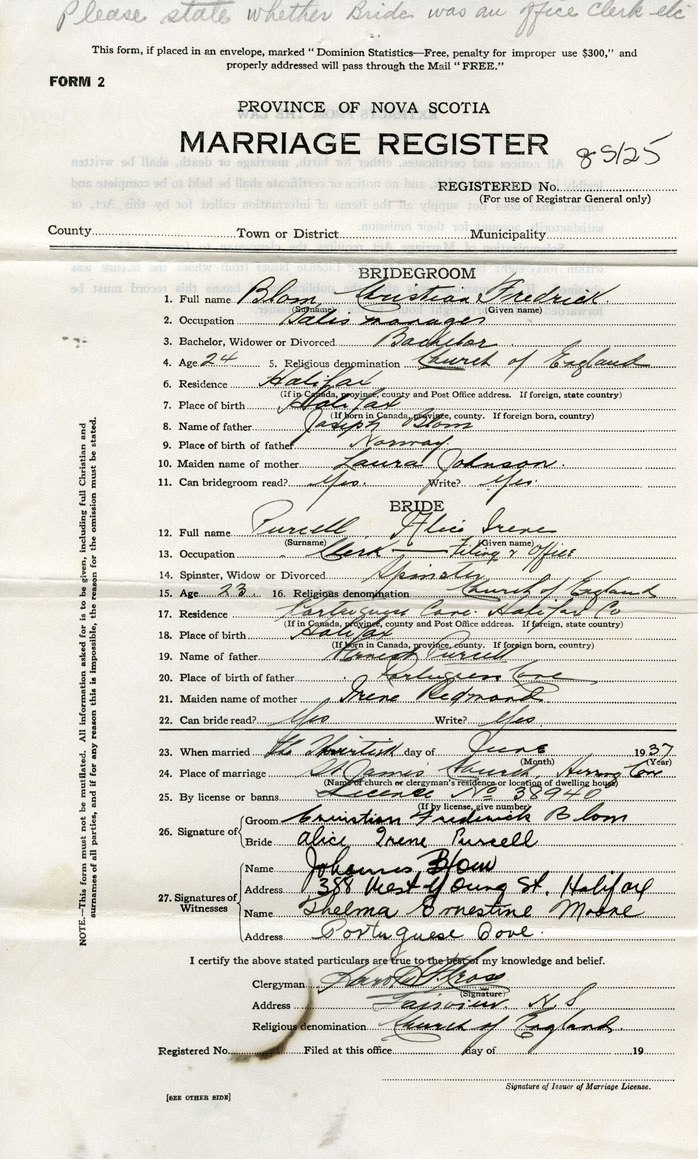 Please state whether Bride was an office Clerk etc
This form, if placed in an envelope, marked "Dominion Statistics—Free, penalty for improper use $300," and
properly addressed will pass through the Mail "FREE."
FORM 2
PROVINCE OF NOVA SCOTIA
MARRIAGE REGISTER
REGISTERED No.
(For use of Registrar General only)
County Town or District Municipality
BRIDEGROOM
1. Full name Blom, Christian Fredrick.
(Surname) (Given name)
2. Occupation Sales manager
3. Bachelor, Widower or Divorced Bachelor
4. Age 24 5. Religious denomination Church of England
6. Residence Halifax
(If in Canada, province, county and Post Office address. If foreign, state country)
7. Place of birth Halifax
(If born in Canada, province, county. If foreign born, country)
8. Name of father Joseph Blom
9. Place of birth of father Norway
10. Maiden name of mother Laura Johnson.
11. Can bridegroom read? Yes. Write? Yes.
BRIDE
12. Full name Purcell, Alice Irene
(Surname) (Given name)
13. Occupation Clerk — Filing & Office
14. Spinster, Widow or Divorced Spinster
15. Age 23 16. Religious denomination Church of England
17. Residence Portuguese Cove. Halifax Co
(If in Canada, province, county and Post Office address. If foreign, state country)
18. Place of birth Halifax
(If born in Canada, province, county. If foreign born, country)
19. Name of father Ernest Purcell
20. Place of birth of father Portuguese Cove
21. Maiden name of mother Irene Redmond
22. Can bride read? Yes Write? Yes
23. When married the Thirtieth day of June 1937
(Month) (Year)
24. Place of marriage St James Church, Herring Cove
(Name of church or clergyman's residence or location of dwelling house)
25. By license or banns License No 38940
(If by license, give number)
26. Signature of
Groom Christian Frederick Blom
Bride Alice Irene Purcell
27. Signatures of Witnesses
Name Johannes Blom
Address 388 West Young St. Halifax
Name Thelma Ernestine Moore
Address Portuguese Cove.
I certify the above stated particulars are true to the best of my knowledge and belief.
Clergyman
(Signature)
Address Fairview. N.S
Religious denomination Church of England.
Registered No. Filed at this office day of 19
Signature of Issuer of Marriage License.
[SEE OTHER SIDE]
NOTE.—This form must not be mutilated. All information asked for is to be given, including full Christian and
surnames of all parties, and if for any reason this is impossible, the reason for the omission must be stated.